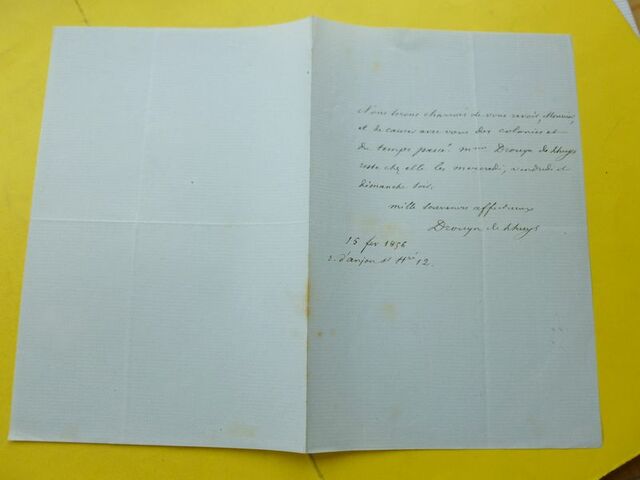 Nous serons charmés de vous revoir, Monsieur,
et de causer avec vous des colonies et
du temps passé. Mme Drouyn de Lhuys
reste chez elle les mercredi, vendredi et
dimanche soir.
mille souvenirs affectueux
Drouyn de Lhuys
15 fev 1856
r. d'anjou St Hré 12.